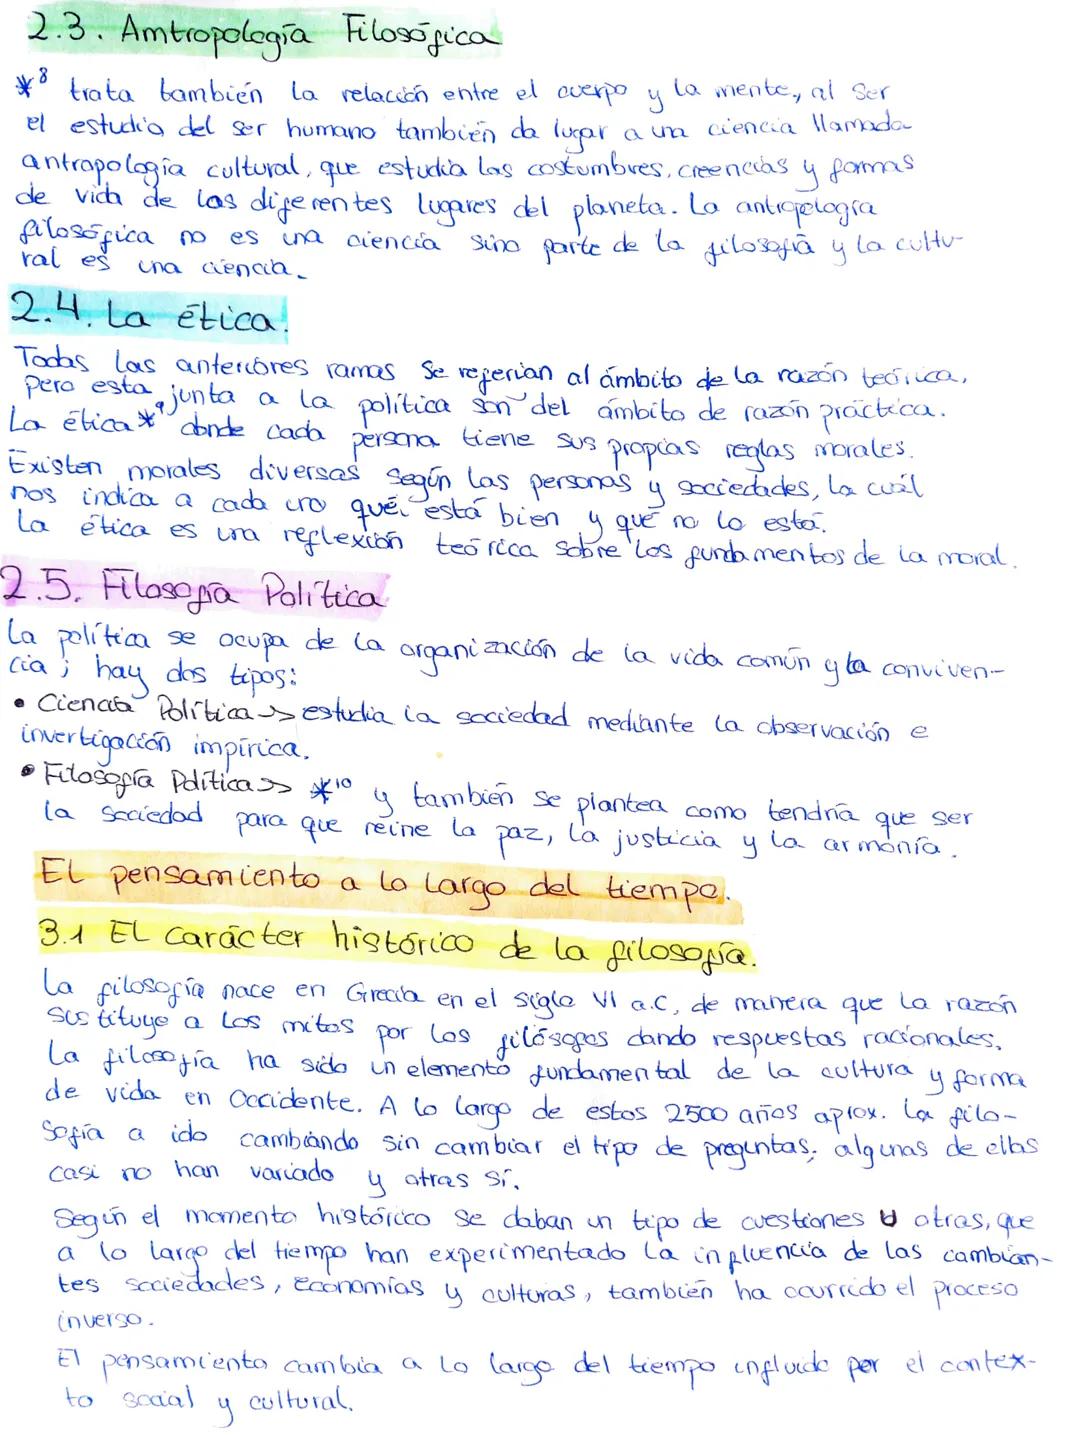 2.3. Amtropología Filosófica
*8 trata también la relación entre el cuerpo y la mente, al ser
el estudio del ser humano también da lugar a una ciencia llamada
antropología cultural, que estudia las costumbres, creencias y formas
de vida de los diferentes lugares del planeta. La antropología
filosófica no es una ciencia sino parte de la filosofía y la cultu-
ral es una ciencia.
2.4. La ética.
Todas las anteriores ramas se referían al ámbito de la razón teórica,
pero esta, junta a la política son del ámbito de razón práctica.
La ética *9 donde cada persona tiene sus propias reglas morales.
Existen morales diversas según las personas y sociedades, la cuál
nos indica a cada uno qué está bien y qué no lo está.
La ética es una reflexión teórica sobre los fundamentos de la moral.
2.5. Filosofía Política
La política se ocupa de la organización de la vida común y la conviven-
cia; hay dos tipos:
• Ciencia Política -> estudia la sociedad mediante la observación e
invertigación impírica.
• Filosofía Política -> *10 y también se plantea como tendría que ser
la sociedad para que reine la paz, la justicia y la armonía.
El pensamiento a lo largo del tiempo.
3.1 El carácter histórico de la filosofía.
La filosofía nace en Grecia en el siglo VI a.C, de manera que la razón
sustituye a los mitos por los filósofos dando respuestas racionales.
La filosofía ha sido un elemento fundamental de la cultura y forma
de vida en Occidente. A lo largo de estos 2500 años aprox. la filo-
sofía a ido cambiando sin cambiar el tipo de preguntas, algunas de ellas
casi no han variado y otras sí.
Según el momento histórico se daban un tipo de cuestiones u otras, que
a lo largo del tiempo han experimentado la influencia de las cambian-
tes sociedades, economías y culturas, también ha ocurrido el proceso
inverso.
El pensamiento cambia a lo largo del tiempo influido por el contex-
to social y cultural.